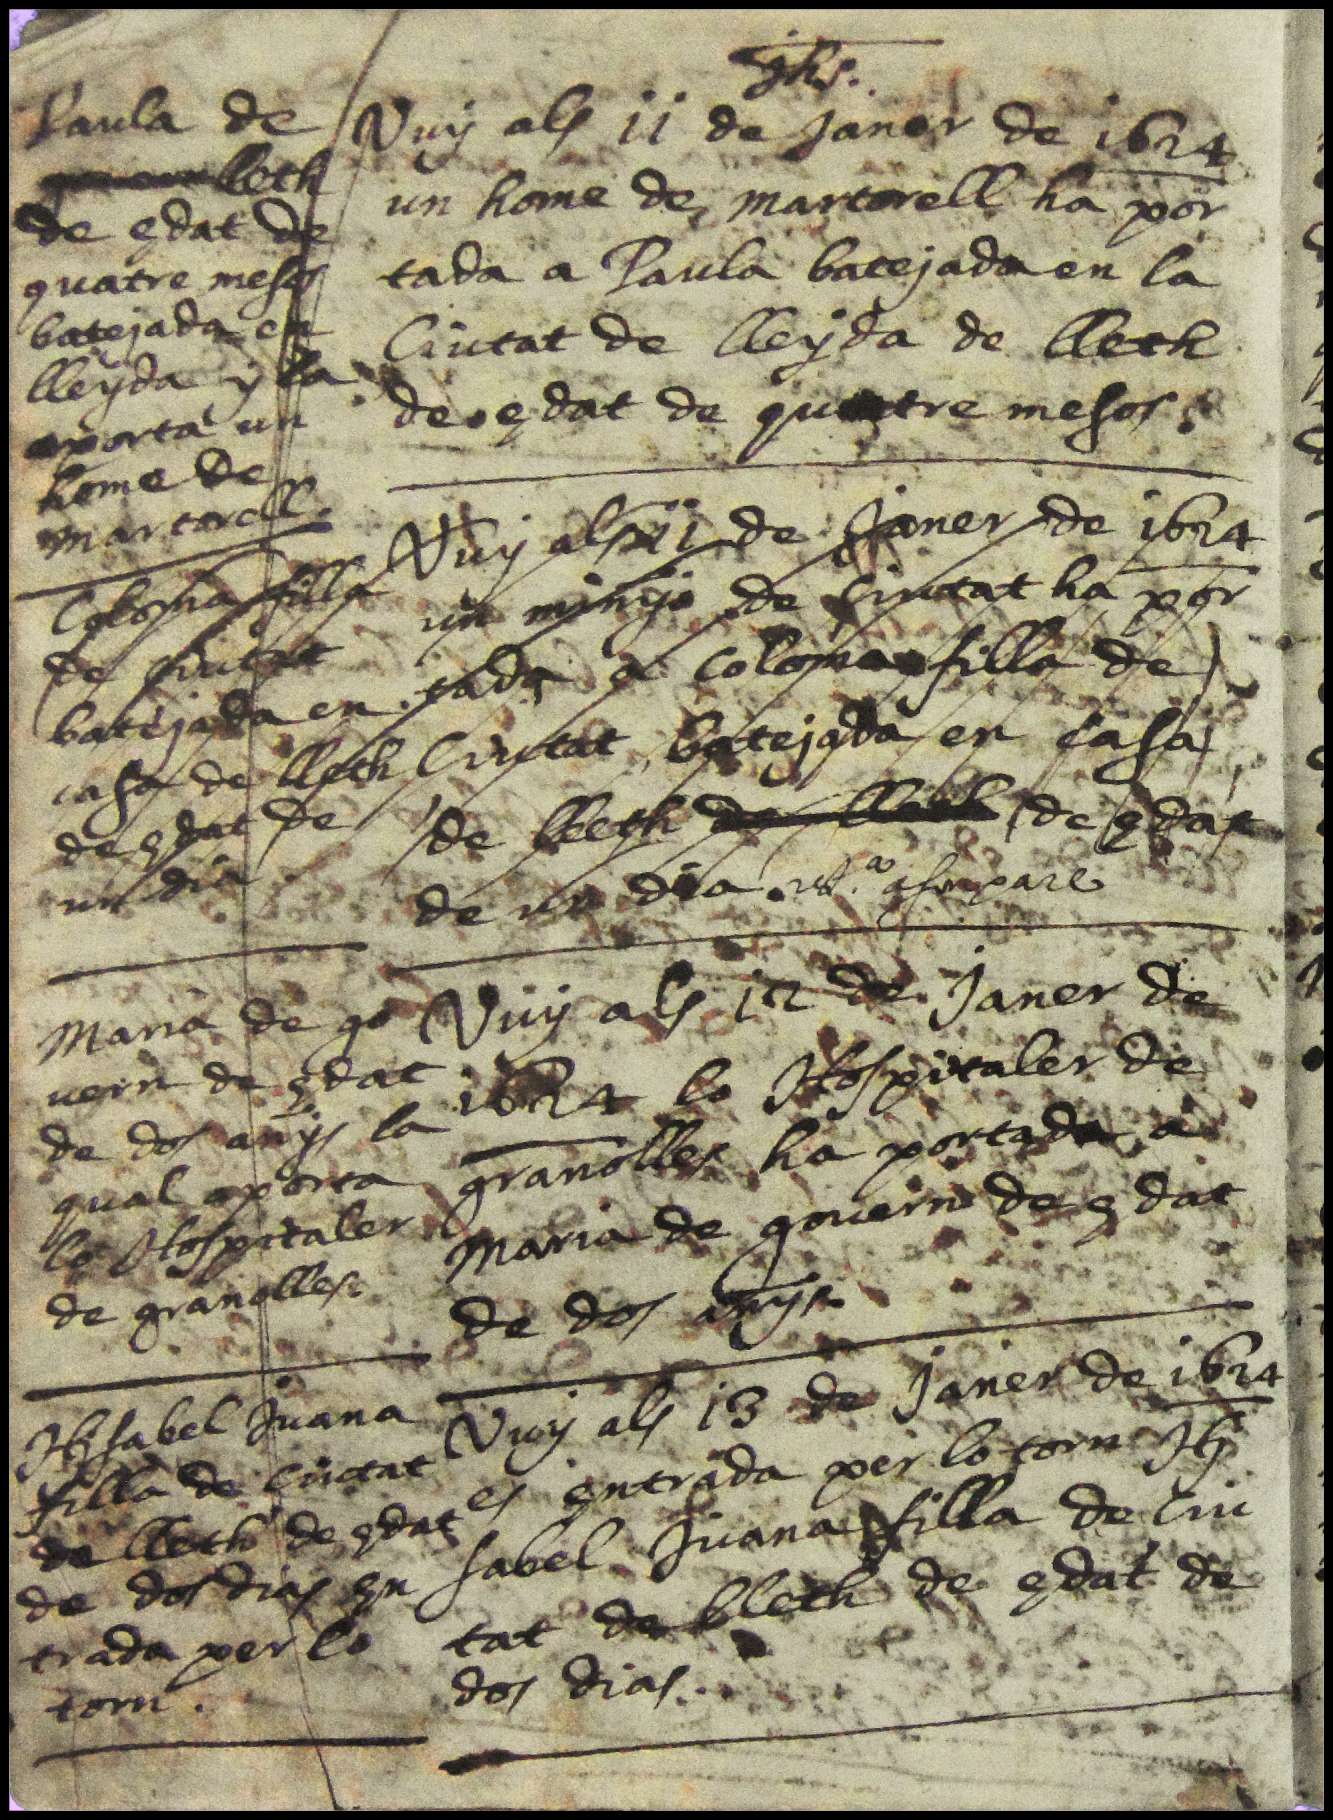 Jhs.
Paula de
lleth
de edat de
quatre mesos
batejada en
lleyda y la
aporta un
home de
martorell.
Vuy als 11 de Janer de 1624
un home de martorell ha por
tada a Paula batejada en la
Ciutat de lleyda de lleth
de edat de quatre mesos.
Coloma filla
de Ciutat
batejada en
casa de lleth
de edat de
un dia
Vuy als 11 de Janer de 1624
un minyo de Ciutat ha por
tada a Coloma filla de
Ciutat batejada en casa
de lleth de lleth de edat
de un dia. a son pare
Maria de go
vern de edat
de dos anys la
qual aporta
lo Hospitaler
de granolles.
Vuy als 12 de Janer de
1624 lo Hospitaler de
granolles ha portada a
Maria de govern de edat
de dos anys.
Hysabel Juana
filla de Ciutat
de lleth de edat
de dos dias en
trada per lo
torn.
Vuy als 13 de Janer de 1624
es entrada per lo torn Hy
sabel Juana filla de Ciu
tat de lleth de edat de
dos dias.